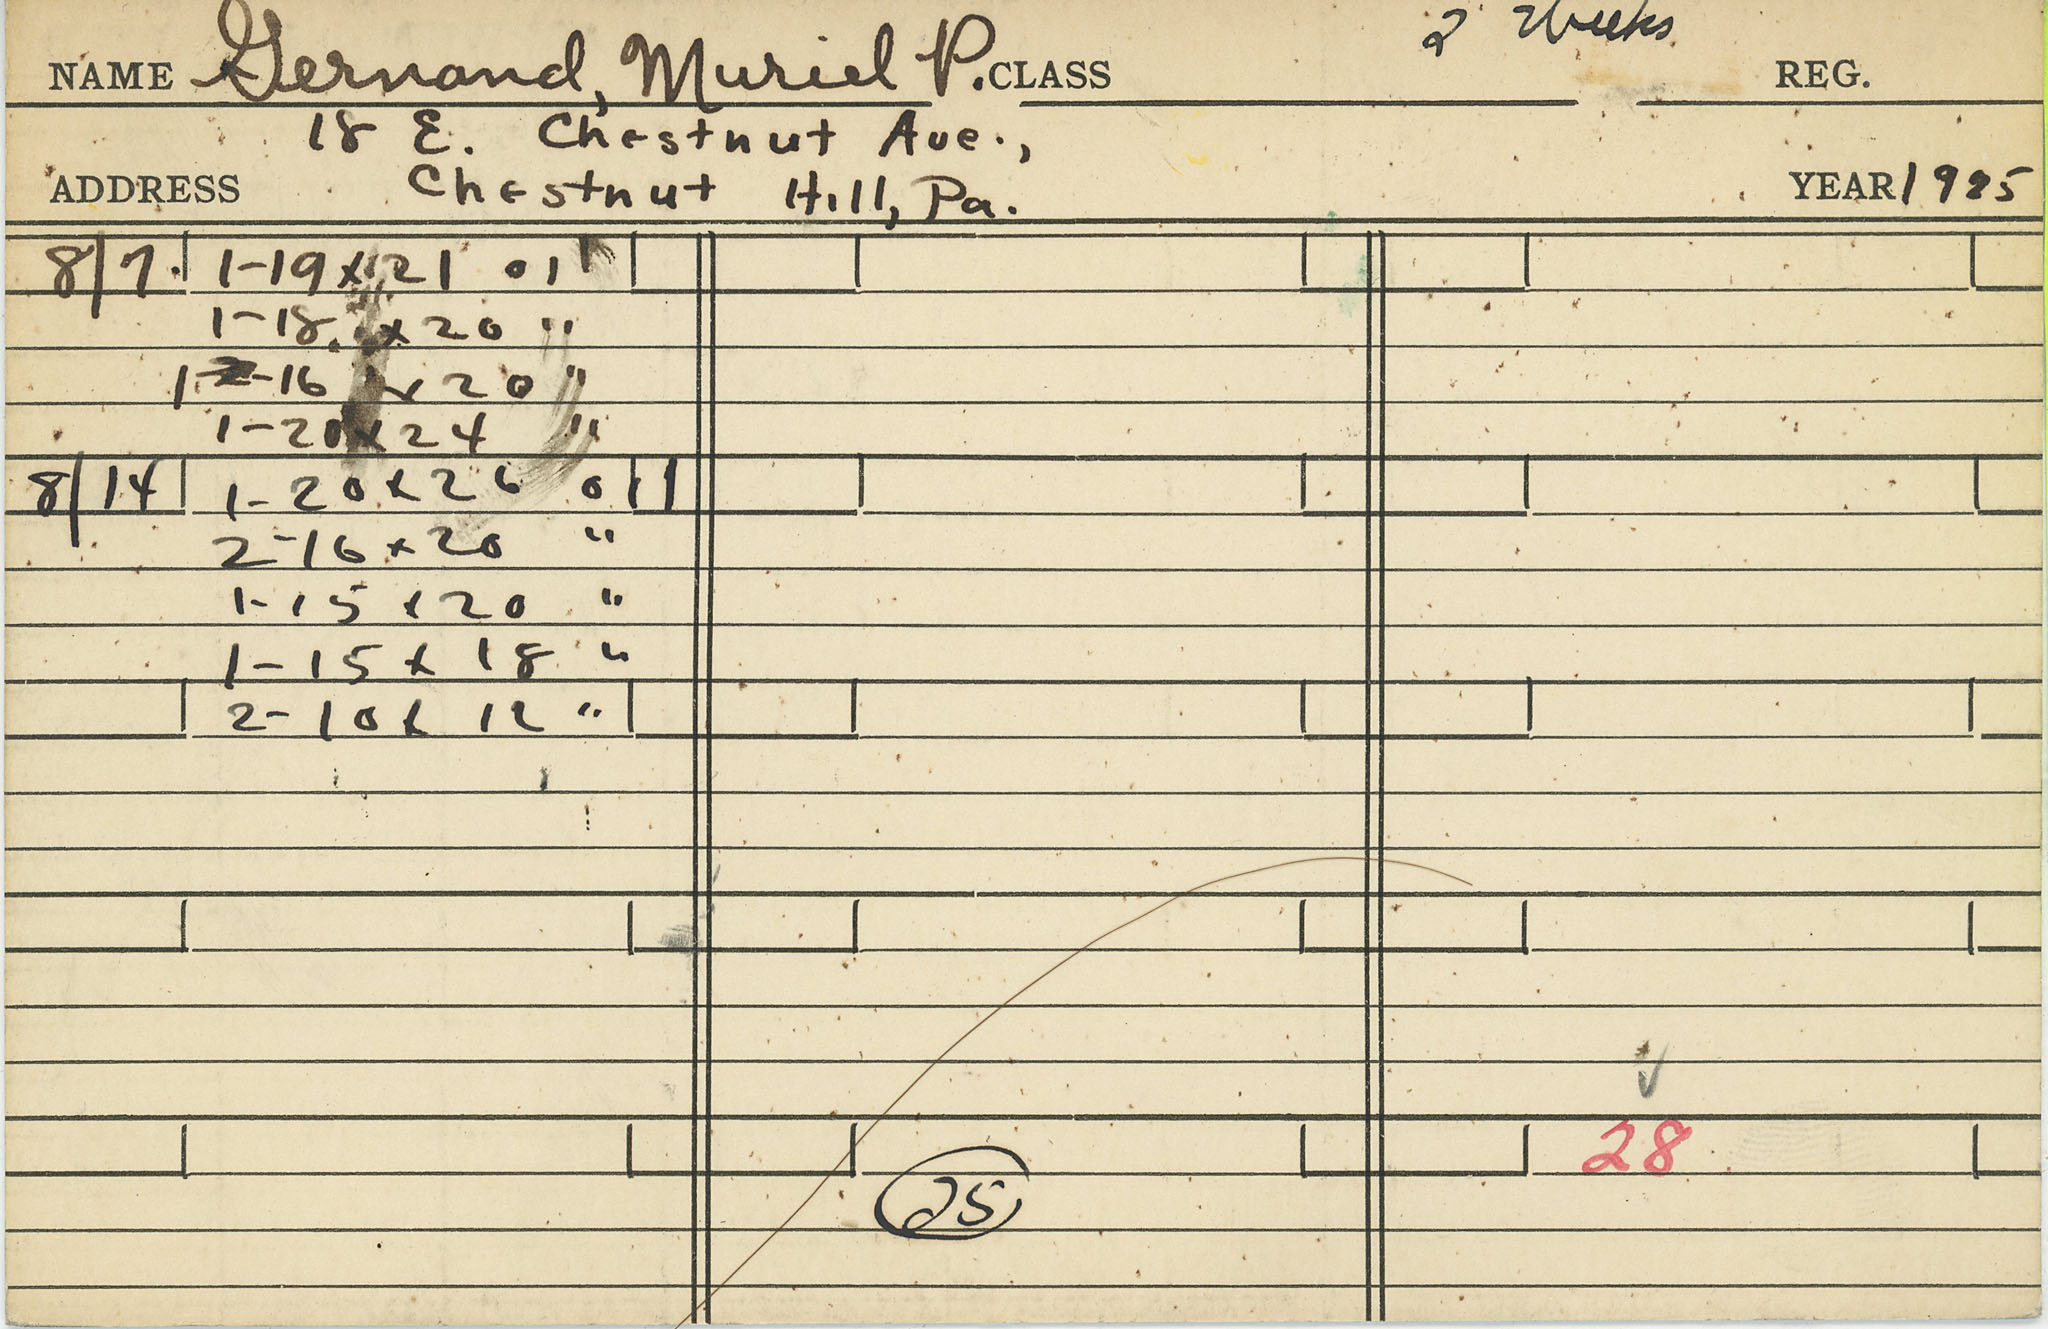 NAME Gernand, Muriel P. CLASS 2 Weeks REG.
18 E. Chestnut Ave.,
ADDRESS Chestnut Hill, Pa. YEAR 1925
8/7. 1-19x21 oil
1-18 x 20 "
1-16 x 20 "
1-20x24 "
8/14 1-20x26 oil
2-16x20 "
1-15x20 "
1-15x18 "
2-10x12 "
28
25